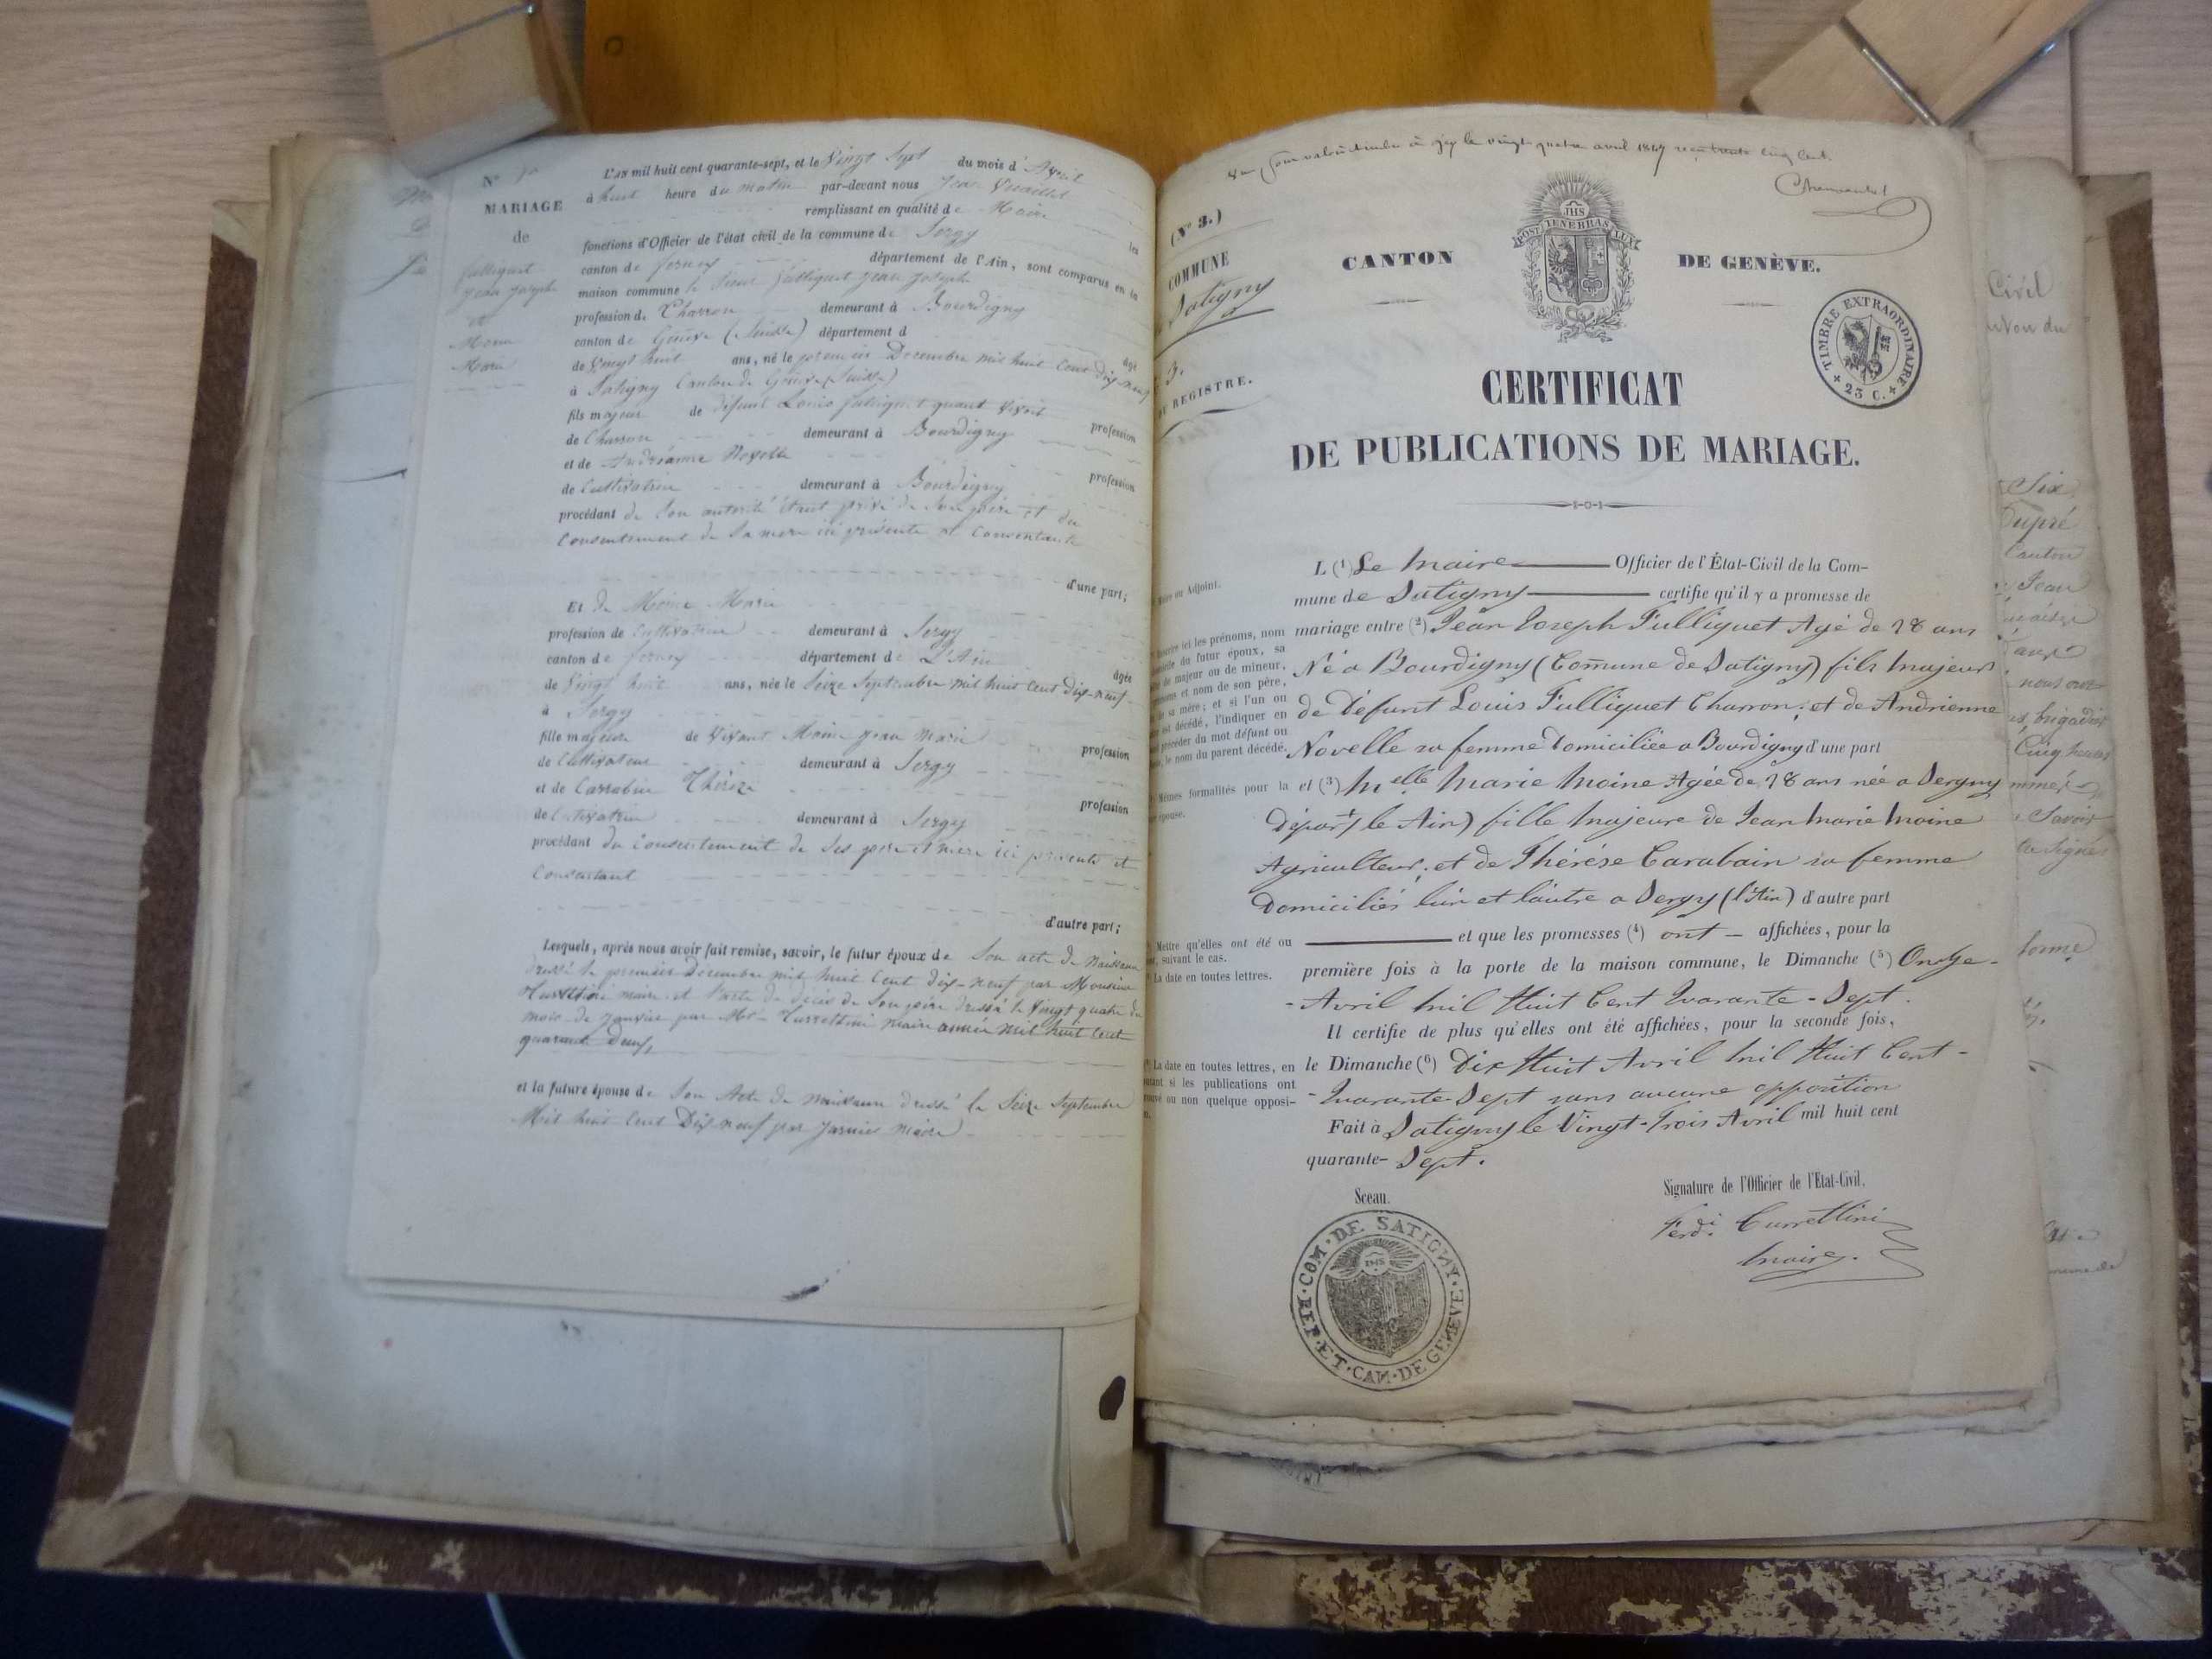 N°
MARIAGE
de
Fulliquet
Jean Joseph
et
Moine
Marie
L'AN mil huit cent quarante-sept, et le Vingt Sept du mois d'Avril
à huit heure du matin par-devant nous Jean
remplissant en qualité de Maire les
fonctions d'Officier de l'état civil de la commune de Sergy
canton de Ferney département de l'Ain, sont comparus en la
maison commune le Sieur Fulliquet Jean Joseph
profession de Charron demeurant à Bourdigny
canton de Genève (Suisse) département d
âgé
de Vingt huit ans, né le premier Decembre mil huit Cent dix neuf
à Satigny Canton de Genève (Suisse)
fils majeur de défunt Louis Fulliquet quant Vivait profession
de Charron demeurant à Bourdigny
et de Andrianne Novelle profession
de Cultivatrice demeurant à Bourdigny
procédant de Son autorité étant privé de Son père et du
Consentement de Sa mère ici présente et Consentante
d'une part;
Et de Moine Marie
profession de Cultivatrice demeurant à Sergy
canton de Ferney département de L'Ain
âgée
de Vingt huit ans, née le Seize Septembre mil huit Cent dix-neuf
à Sergy
fille majeure de Vivant Moine Jean Marie profession
de Cultivateur demeurant à Sergy
et de Carrabin Thérèze profession
de Cultivatrice demeurant à Sergy
procédant du Consentement de Ses père et mère ici présents et
Consentant
d'autre part;
Lesquels, après nous avoir fait remise, savoir, le futur époux de Son acte de Naissance
dressé le premier décembre mil huit Cent dix-neuf par Monsieur
Turrettini maire et l'acte de décès de Son père dressé le Vingt quatre du
mois de Janvier par Mr Turrettini maire année mil huit cent
quarante Deux,
et la future épouse de Son Acte de naissance dressé le Seize Septembre
Mil huit Cent Dix neuf par maire
à Gex le vingt quatre avril 1847
(N° 3.)
COMMUNE
Satigny
3.
DU REGISTRE.
CANTON DE GENÈVE.
POST TENEBRAS LUX
JHS
TIMBRE EXTRAORDINAIRE
25 C.
CERTIFICAT
DE PUBLICATIONS DE MARIAGE.
L (1) Le Maire Officier de l'État-Civil de la Com-
Maire ou Adjoint.
mune de Satigny certifie qu'il y a promesse de
mariage entre (2) Jean Joseph Fulliquet Agé de 28 ans
Né a Bourdigny (Comune de Satigny) fils Majeur
de Défunt Louis Fulliquet Charron; et de Andrienne
Novelle sa femme Domiciliée a Bourdigny d'une part
Inscrire ici les prénoms, nom
du futur époux, sa
de majeur ou de mineur,
et nom de son père,
sa mère; et si l'un ou
est décédé, l'indiquer en
précéder du mot défunt ou
le nom du parent décédé.
et (3) Melle Marie Moine Agée de 28 ans née a Sergny
Mêmes formalités pour la
épouse.
Départt (le Ain) fille Majeure de Jean Marie Moine
Agriculteur, et de Thérése Carabain sa femme
Domiciliés l'un et l'autre a Sergy (l'Ain) d'autre part
et que les promesses (4) ont affichées, pour la
Mettre qu'elles ont été ou
suivant le cas.
La date en toutes lettres.
première fois à la porte de la maison commune, le Dimanche (5) Onze
Avril Mil Huit Cent Quarante-Sept.
Il certifie de plus qu'elles ont été affichées, pour la seconde fois,
le Dimanche (6) Dix Huit Avril Mil Huit Cent-
Quarante-Sept sans aucune opposition
La date en toutes lettres, en
si les publications ont
ou non quelque opposi-
Fait à Satigny le Vingt-Trois Avril mil huit cent
quarante- Sept.
Sceau. Signature de l'Officier de l'État-Civil.
Ferdi Turrettini
Maire.
COM. DE SATIGNY. REP. ET. CAN. DE GENEVE.
JHS
Civil
Six
Dupré
Canton
Jean
nous
brigadier
Cinq heures
Savoir